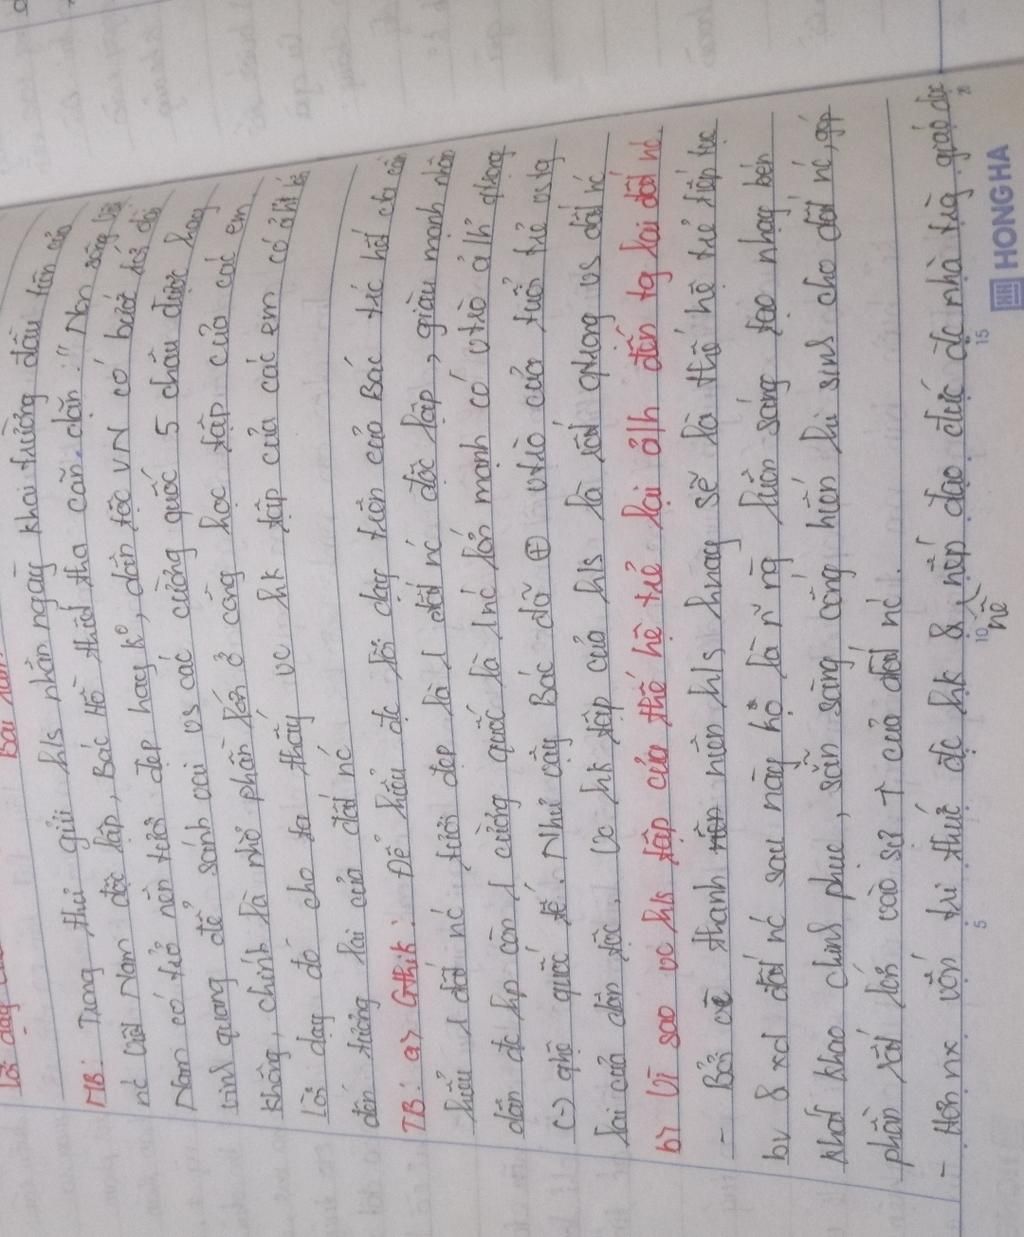 Lời dạy của
Bài làm
khai trường đầu tiên của
MB: Trong thư gửi h/s nhân ngày
nc Việt Nam độc lập, Bác Hồ thiết tha căn dặn: "Non sông Việt
Nam có trở nên tươi đẹp hay ko, dân tộc VN có bước tới đài
vinh quang để sánh vai vs các cường quốc 5 châu được hay
không, chính là nhờ phần lớn ở công học tập của các em
Lời dạy đó cho ta thấy vc hk tập của các em có ảlh
đến tương lai của đất nc
TB: a> Gthik: Để hiểu đc lời dạy trên của Bác trc hết cta cần
hiểu 1 đất nc tươi đẹp là 1 đất nc độc lập, giàu mạnh nhân
dân đc hp còn 1 cường quốc là 1 nc lớn mạnh có vtrò ảlh qtrọng
(-) qhệ quốc tế. Như vậy Bác đã ⊕ vtrò của tuổi trẻ vs tg
lai của dân tộc, vc hk tập của h/s là rất qtrọng vs đất nc
b> Vì sao vc h/s tập của thế hệ trẻ lại ảlh đến tg lai đất nc
- Bởi vì thanh niên h/s hnay sẽ là thế hệ trẻ tiếp tục
bv & xd đất nc sau này họ là n~ ng luôn sáng tạo nhạy bén
khát khao chinh phục, sẵn sàng cống hiến hi sinh cho đất nc, góp
phần rất lớn vào sự ↑ của đất nc.
- Hơn nx vốn tri thức đc hk & nếp đạo đức đc nhà trg giáo dục
nề
5
10
15
HONG HA